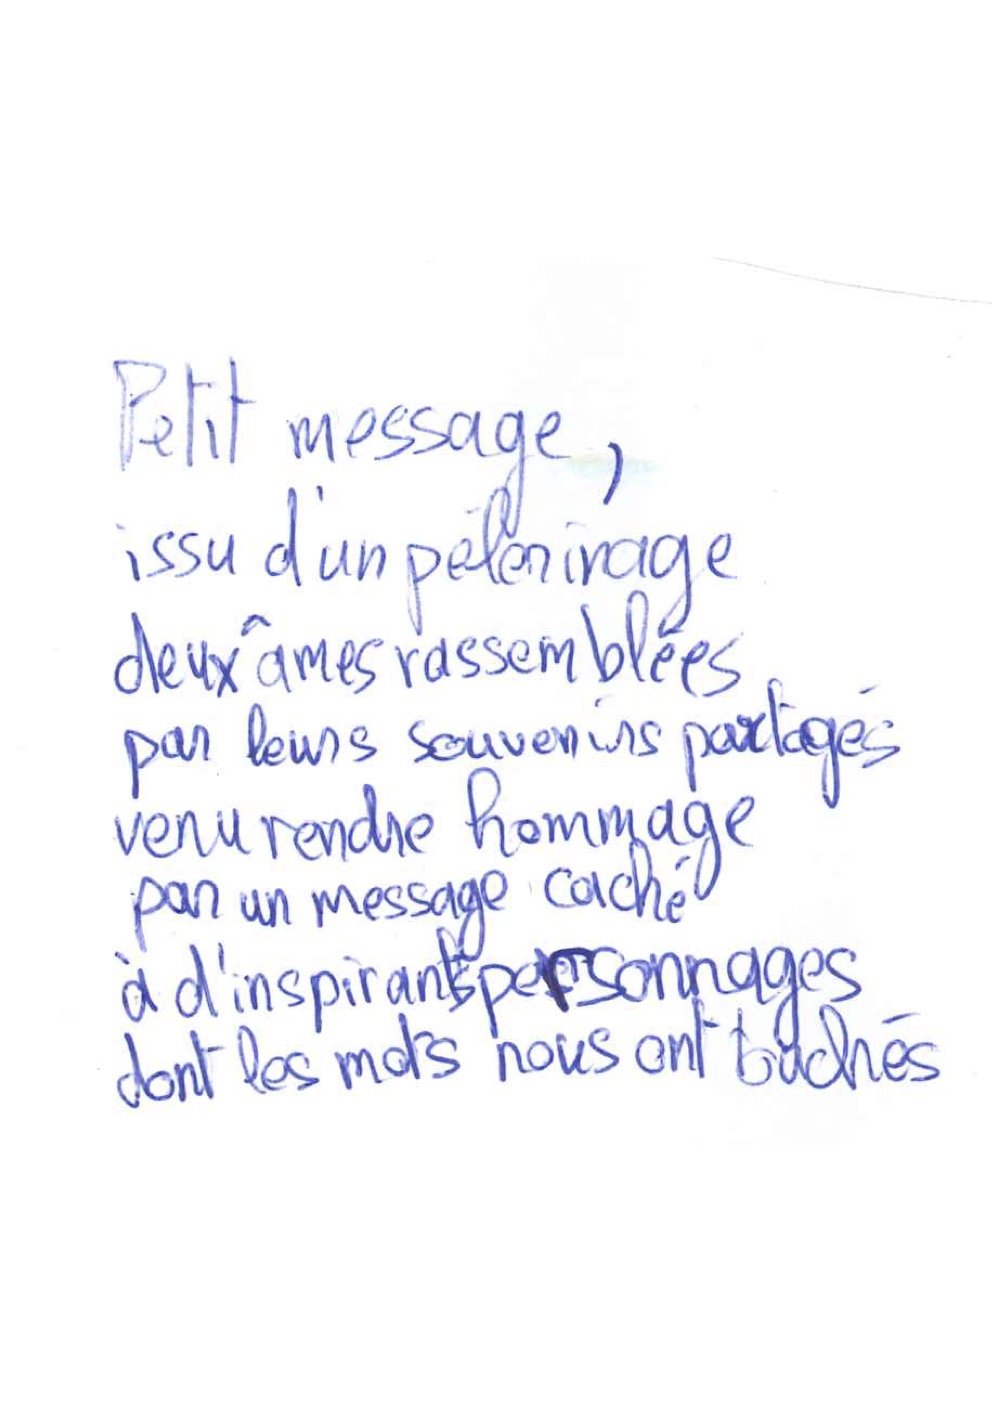 Petit message,
issu d'un pélerinage
deux âmes rassemblées
par leurs souvenirs partagés
venu rendre hommage
par un message caché
à d'inspirants personnages
dont les mots nous ont touchés